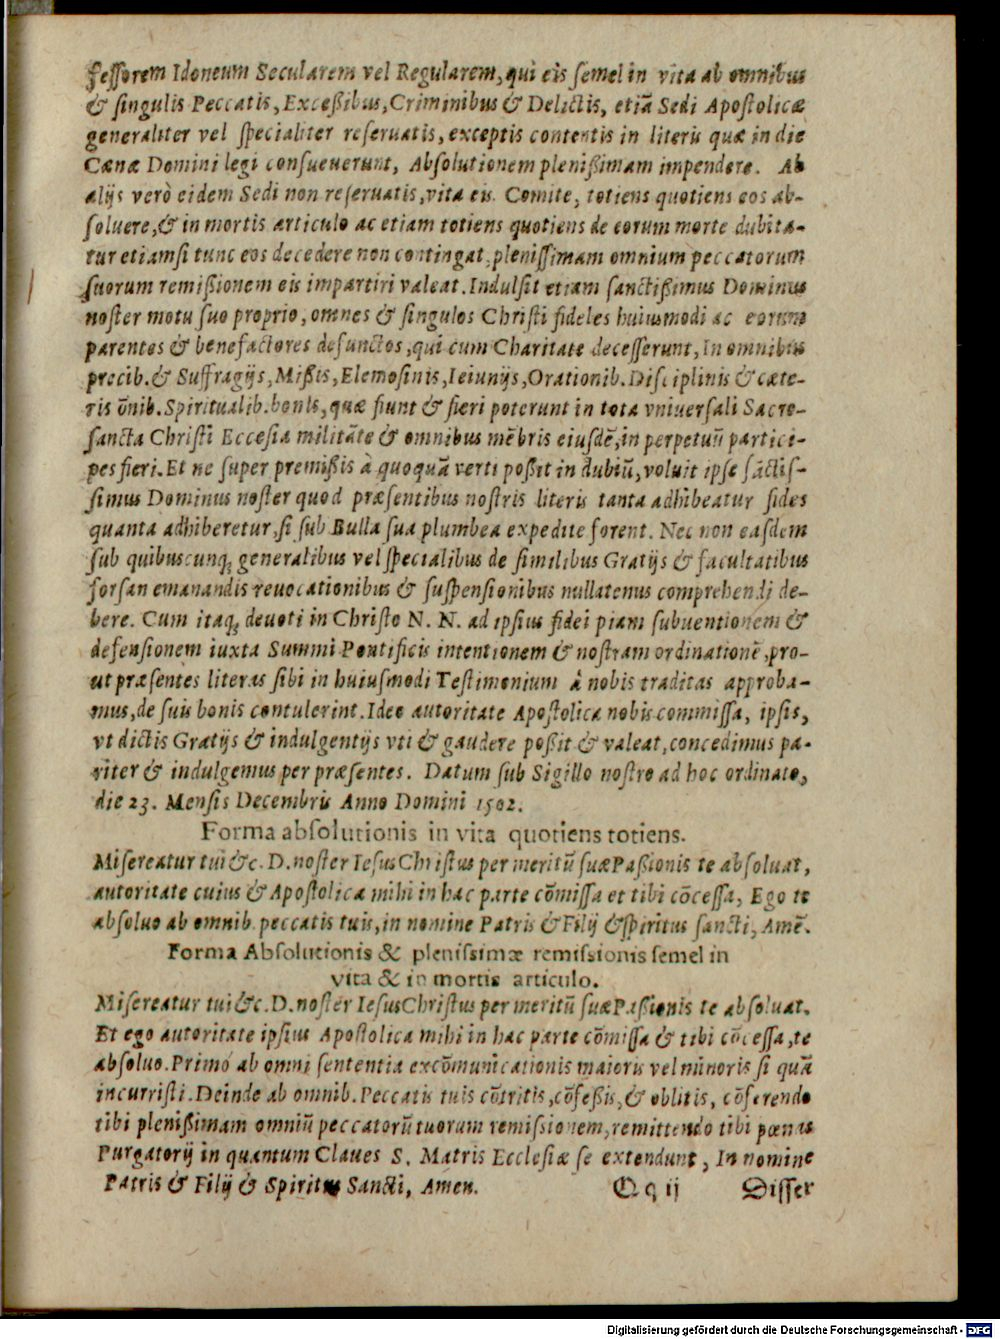 feſſorem Idoneum Secularem vel Regularem, qui eis ſemel in vita ab omnibus
& ſingulis Peccatis, Exceßibus, Criminibus & Delictis, etiã Sedi Apoſtolicæ
generaliter vel ſpecialiter reſeruatis, exceptis contentis in literis quæ in die
Cœnæ Domini legi conſueuerunt, Abſolutionem plenißimam impendere. Ab
alijs verò eidem Sedi non reſeruatis, vita eis Comite, totiens quotiens eos ab-
ſoluere, & in mortis articulo ac etiam totiens quotiens de eorum morte dubita-
tur etiamſi tunc eos decedere non contingat, pleniſſimam omnium peccatorum
ſuorum remißionem eis impartiri valeat. Indulſit etiam ſanctißimus Dominus
noſter motu ſuo proprio, omnes & ſingulos Chriſti fideles huiusmodi ac eorum
parentes & benefactores defunctos, qui cum Charitate deceſſerunt, In omnibus
precib. & Suffragijs, Mißis, Elemoſinis, Ieiunijs, Orationib. Diſciplinis & cæte-
ris õnib. Spiritualib. bonis, quæ fiunt & fieri poterunt in tota vniuerſali Sacro-
ſancta Chriſti Eccleſia militãte & omnibus mẽbris eiuſdẽ, in perpetuũ partici-
pes fieri. Et ne ſuper premißis à quoquã verti poßit in dubiũ, voluit ipſe ſãctiſ-
ſimus Dominus noſter quod præſentibus noſtris literis tanta adhibeatur fides
quanta adhiberetur, ſi ſub Bulla ſua plumbea expedite forent. Nec non eaſdem
ſub quibuscunq; generalibus vel ſpecialibus de ſimilibus Gratijs & facultatibus
forſan emanandis reuocationibus & ſuſpenſionibus nullatenus comprehendi de-
bere. Cum itaq; deuoti in Chriſto N. N. ad ipſius fidei piam ſubuentionem &
defenſionem iuxta Summi Pontificis intentionem & noſtram ordinationẽ, pro-
ut præſentes literas ſibi in huiusmodi Teſtimonium à nobis traditas approba-
mus, de ſuis bonis contulerint. Ideo autoritate Apoſtolica nobis commiſſa, ipſis,
vt dictis Gratijs & indulgentijs vti & gaudere poßit & valeat, concedimus pa-
riter & indulgemus per præſentes. Datum ſub Sigillo noſtro ad hoc ordinato,
die 23. Menſis Decembris Anno Domini 1502.
Forma abſolutionis in vita quotiens totiens.
Miſereatur tui &c. D. noſter Ieſus Chriſtus per meritũ ſuæ Paßionis te abſoluat,
autoritate cuius & Apoſtolica mihi in hac parte cõmiſſa et tibi cõceſſa, Ego te
abſoluo ab omnib. peccatis tuis, in nomine Patris & Filij & ſpiritus ſancti, Amẽ.
Forma Abſolutionis & pleniſsimæ remiſsionis ſemel in
vita & in mortis articulo.
Miſereatur tui &c. D. noſter Ieſus Chriſtus per meritũ ſuæ Paßionis te abſoluat.
Et ego autoritate ipſius Apoſtolica mihi in hac parte cõmiſſa & tibi cõceſſa, te
abſoluo. Primò ab omni ſententia excõmunicationis maioris vel minoris ſi quã
incurriſti. Deinde ab omnib. Peccatis tuis cõtritis, cõfeßis, & oblitis, cõferendo
tibi plenißimam omniũ peccatorũ tuorum remiſsionem, remittendo tibi pœnas
Purgatorij in quantum Claues S. Matris Eccleſiæ ſe extendunt, In nomine
Patris & Filij & Spiritus Sancti, Amen. Q q ij Diſſer
Digitalisierung gefördert durch die Deutsche Forschungsgemeinschaft - DFG